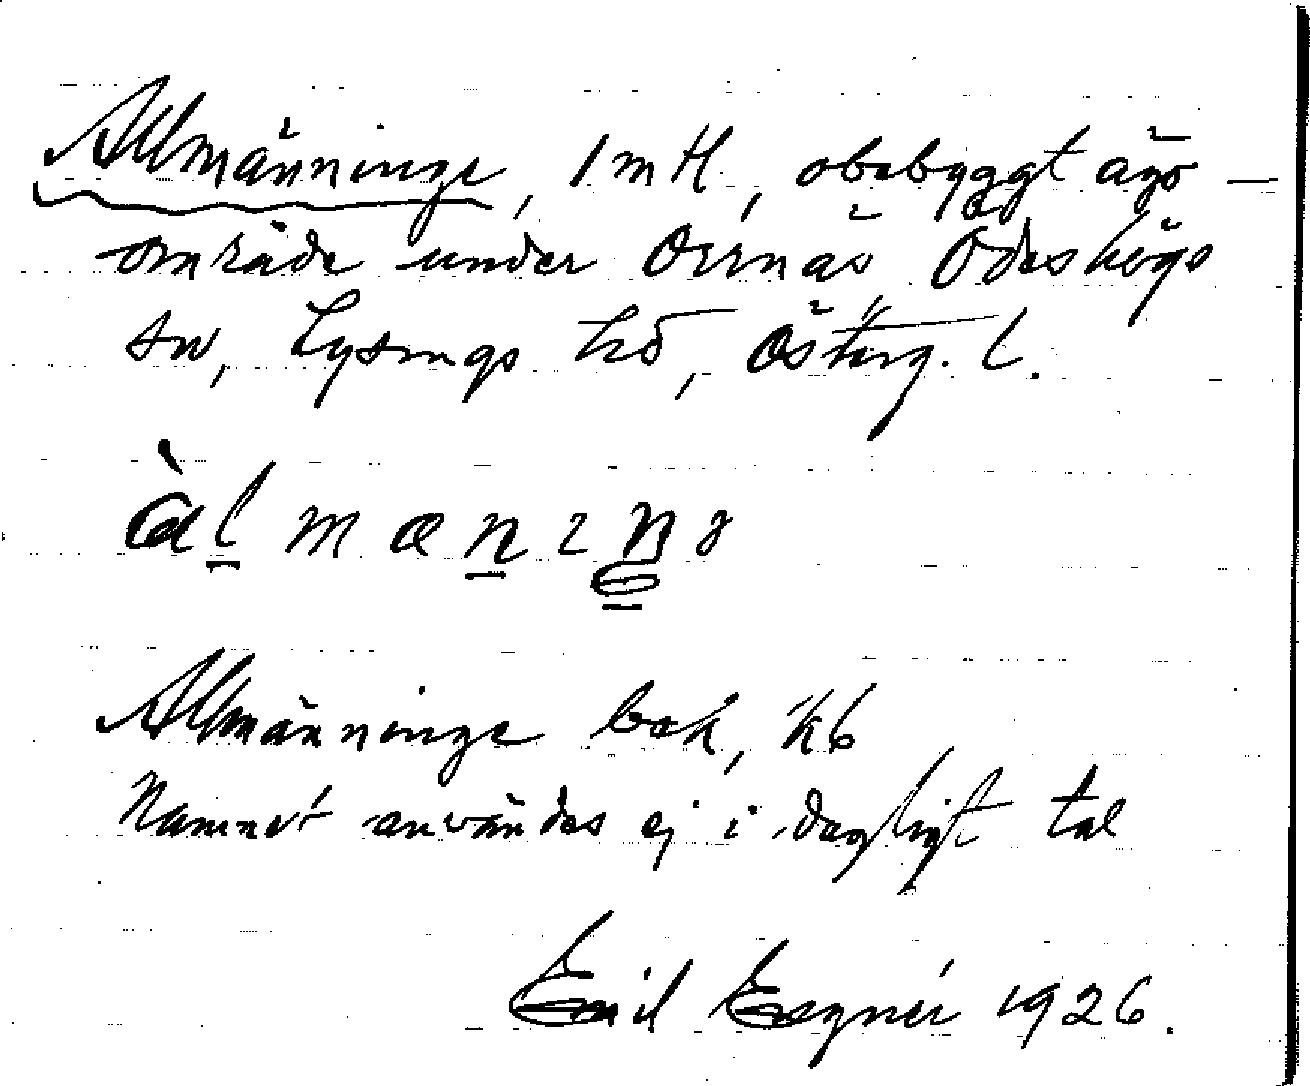 Allmänninge, 1 mtl, obebyggt ägo-
område under Orrnäs Ödeshögs
sn, Lysings hd, Österg. l.
àlmæniŋə
Allmänninge bok, kb
Namnet användes ej i dagligt tal
Emil 1926.